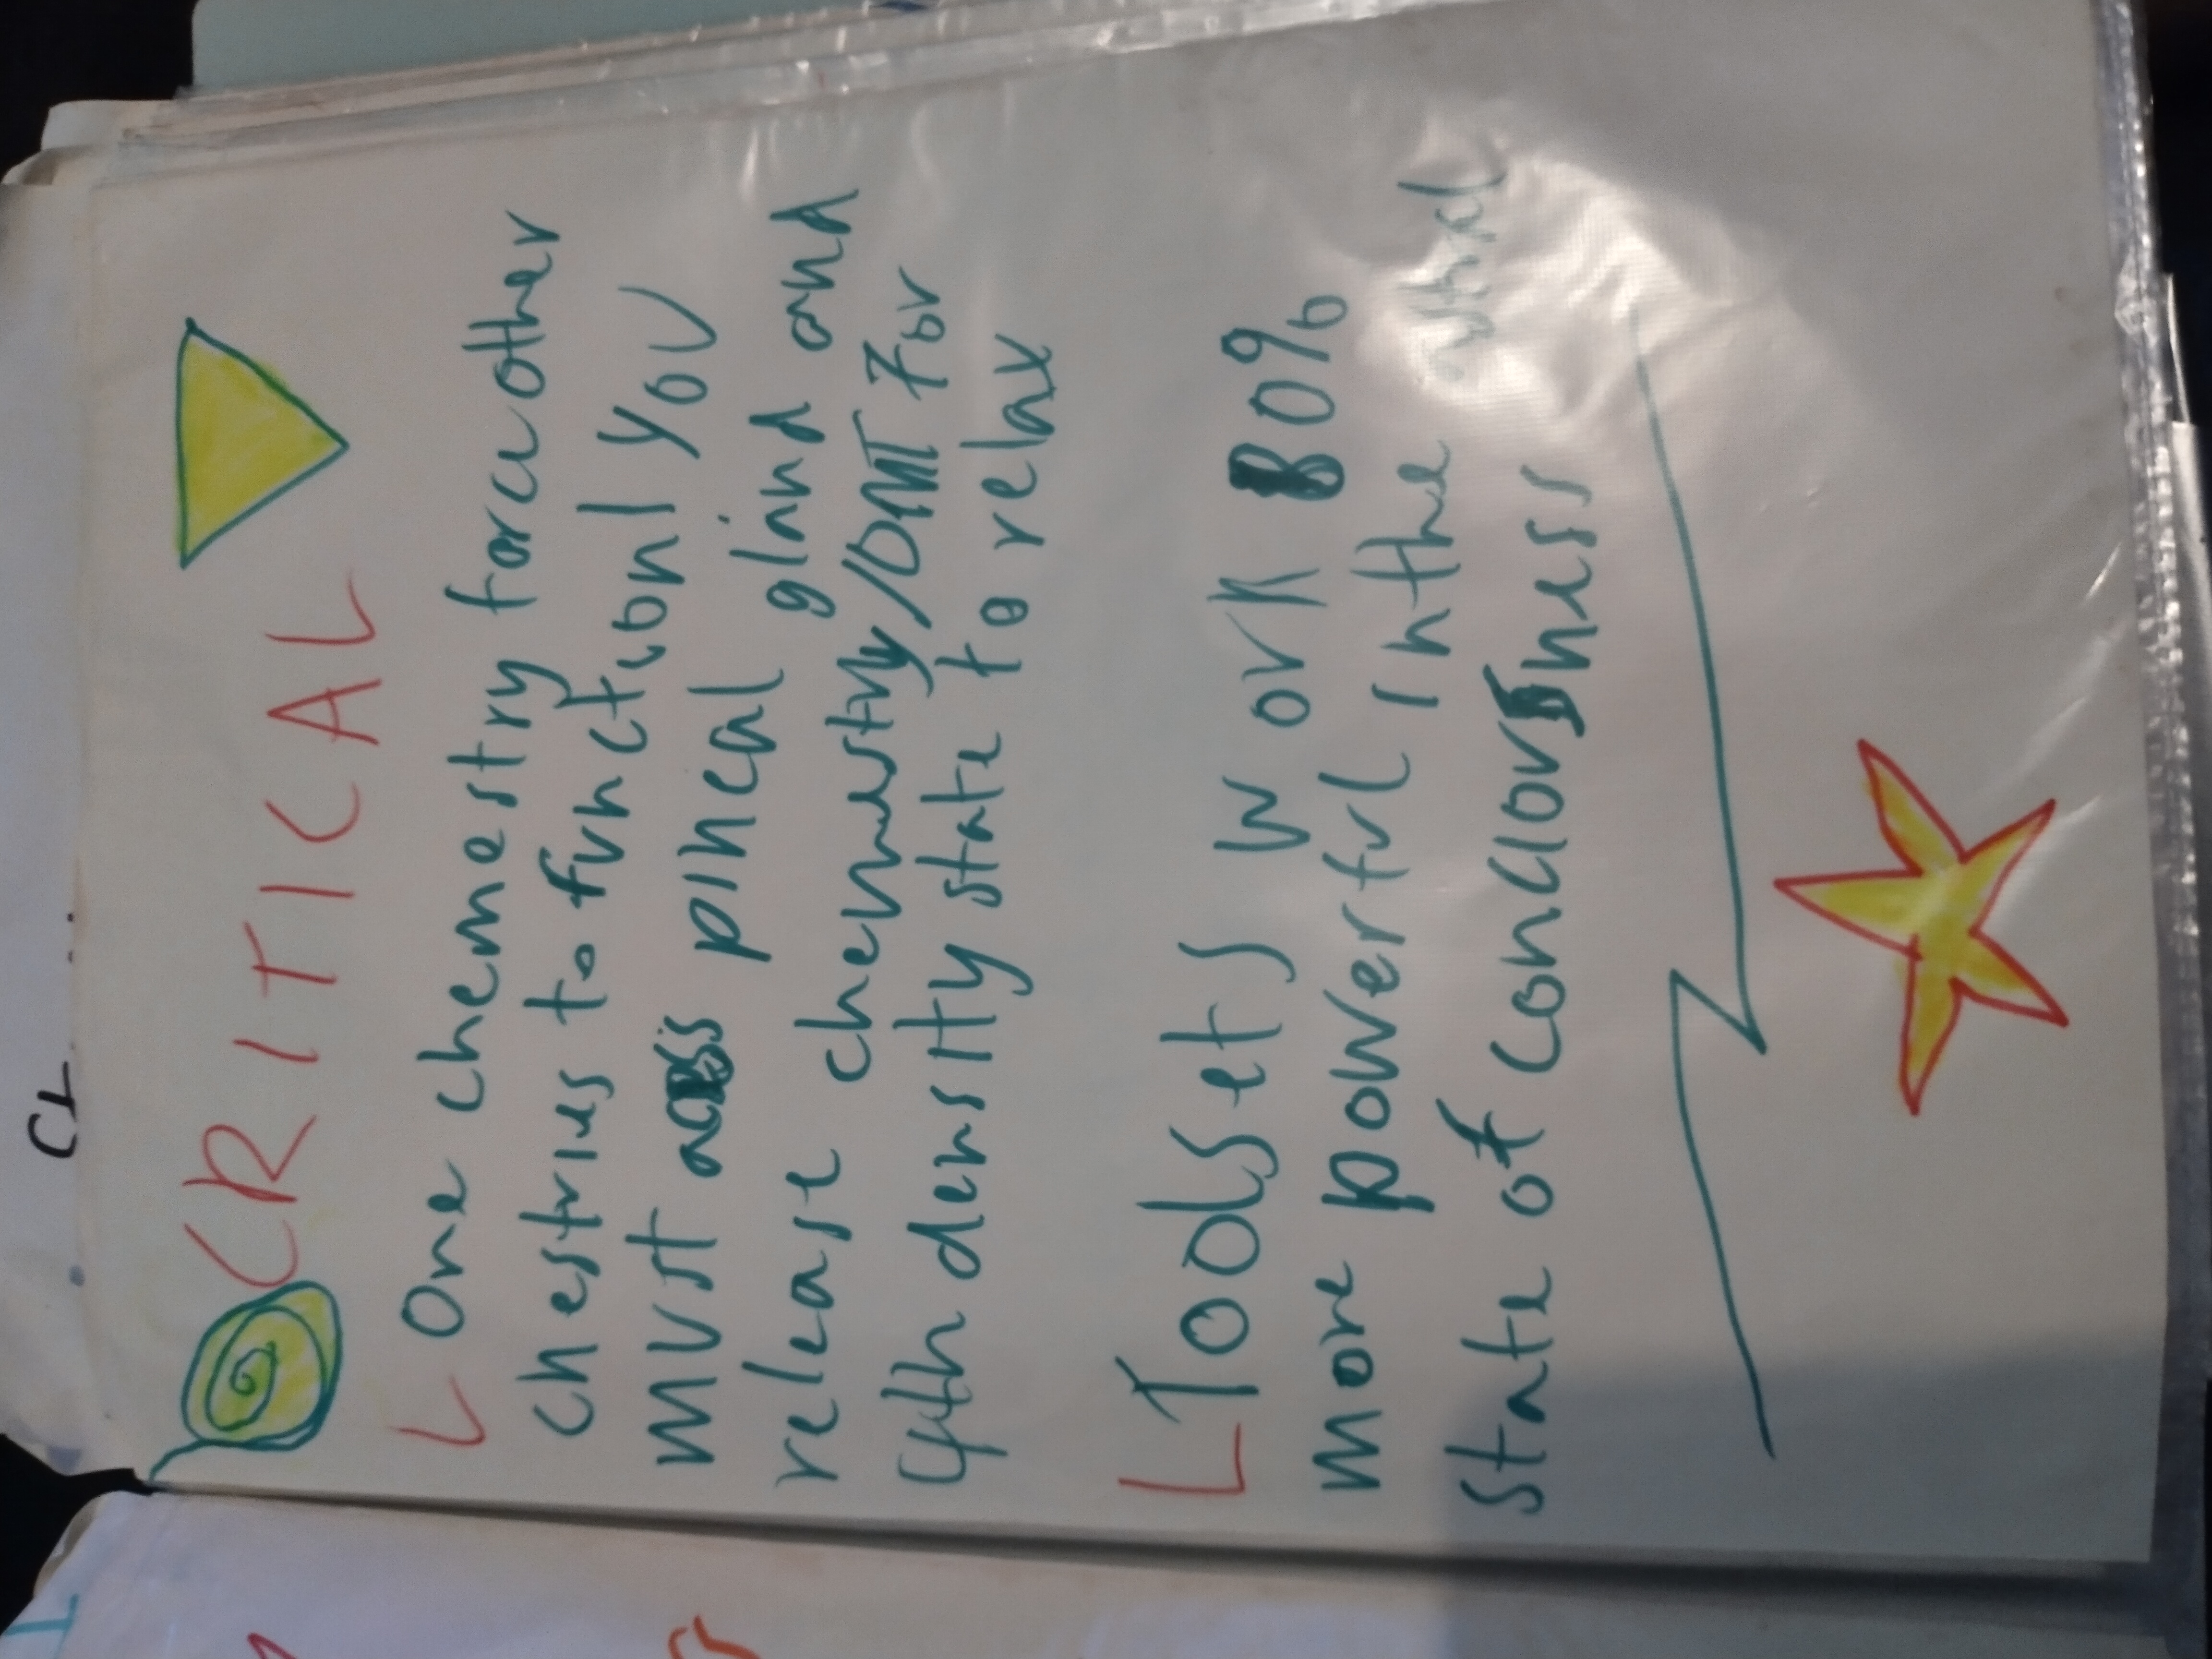 CRITICAL
L One chemestry force other
chestries to function! you
must pineal gland and
release chemestry/DMT for
4th density state to relax
L Toolsets work 80%
more powerfl in the
state of conciousness
CL